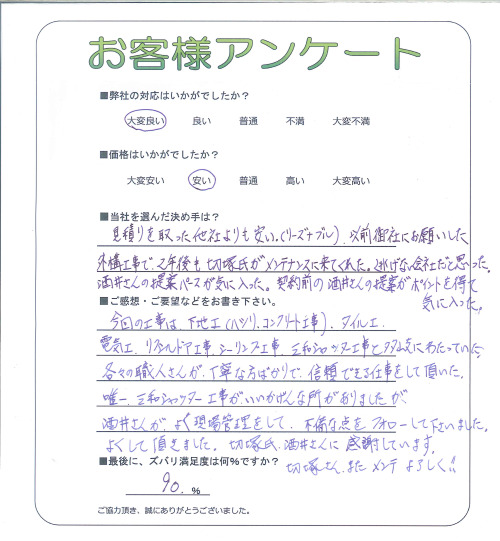 お客様アンケート
■弊社の対応はいかがでしたか?
大変良い 良い 普通 不満 大変不満
■価格はいかがでしたか?
大変安い 安い 普通 高い 大変高い
■当社を選んだ決め手は?
見積りを取った他社よりも安い。(リーズナブル)、以前御社にお願いした
外構工事で、2年後も切塚氏がメンテナンスに来てくれた。逃げない会社だと思った。
酒井さんの提案パースが気に入った。契約前の酒井さんの提案がポイントを得て
気に入った。
■ご感想・ご要望などをお書き下さい。
今回の工事は、下地工(ハツリ、コンクリート工事)、タイル工、
電気工、リクシルドア工事、シーリング工事、三和シャッター工事と多岐にわたっていた。
各々の職人さんが、丁寧な方ばかりで、信頼できる仕事をして頂いた。
唯一、三和シャッター工事がいいかげんな所がありましたが
酒井さんが、よく現場管理をして、不備な点をフォローして下さいました。
よくして頂きました。切塚氏、酒井さんに感謝しています。
切塚さん、またメンテよろしく!!
■最後に、ズバリ満足度は何%ですか?
90. %
ご協力頂き、誠にありがとうございました。